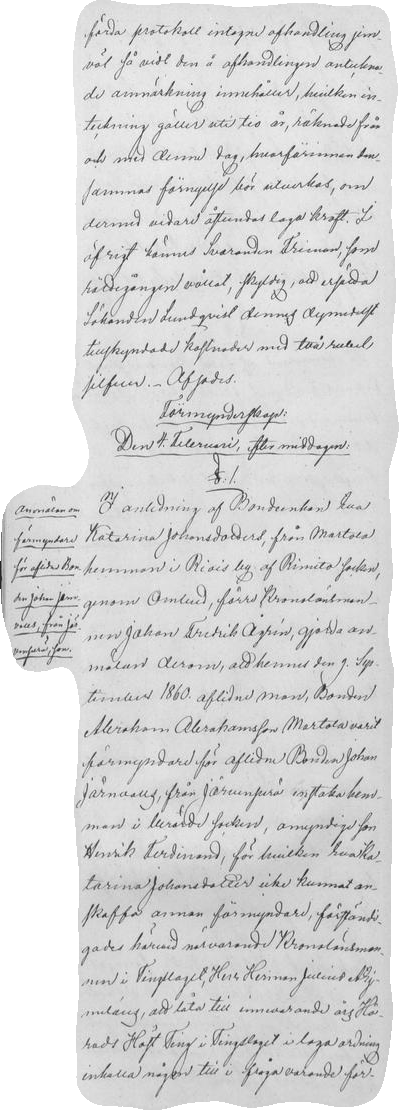 förda protokoll intagne afhandling jem-
väl så vidt den å afhandlingen antekna-
de anmärkning innehåller, hvilken in-
teckning gäller uti tio år, räknade från
och med denne dag, hvarförinnan den-
sammas förnyelse bör utverkas, om
dermed vidare åstundas laga kraft. I
öfrigt kännes Svaranden Friman, som
rättegången vållat, skyldig, att ersätta
Sökanden Lundqvist dennes dymedelst
tillskyndade kostnader med två rubel
silfver. – Afsades.
Förmynderskap:
Den 4. Februari, efter middagen:
§. 1.
Anmälan om
förmyndare
för aflidne Bon-
den Johan Järn-
valls, från Jär-
venperä, son.
I anledning af Bondeenkan Eva
Katarina Johansdotters, från Martola
hemman i Riois by af Rimito socken,
genom Ombud, förre Kronolänsman-
nen Johan Fredrik Agrén, gjorda an-
mälan derom, att hennes den 9. Sep-
tember 1860 aflidne man, Bonden
Abraham Abrahamsson Martola varit
förmyndare för aflidne Bonden Johan
Järnvalls, från Järvenperä enstaka hem-
man i berörde socken, omyndige son
Henrik Ferdinand, för hvilken Eva Ka-
tarina Johansdotter icke kunnat an-
skaffa annan förmyndare, förständi-
gades härvid närvarande Kronolänsman-
nen i Tingslaget, Herr Herman Julius
att låta till innevarande års Hä-
rads Höst Ting i Tingslaget i laga ordning
inkalla någon till i fråga varande för-